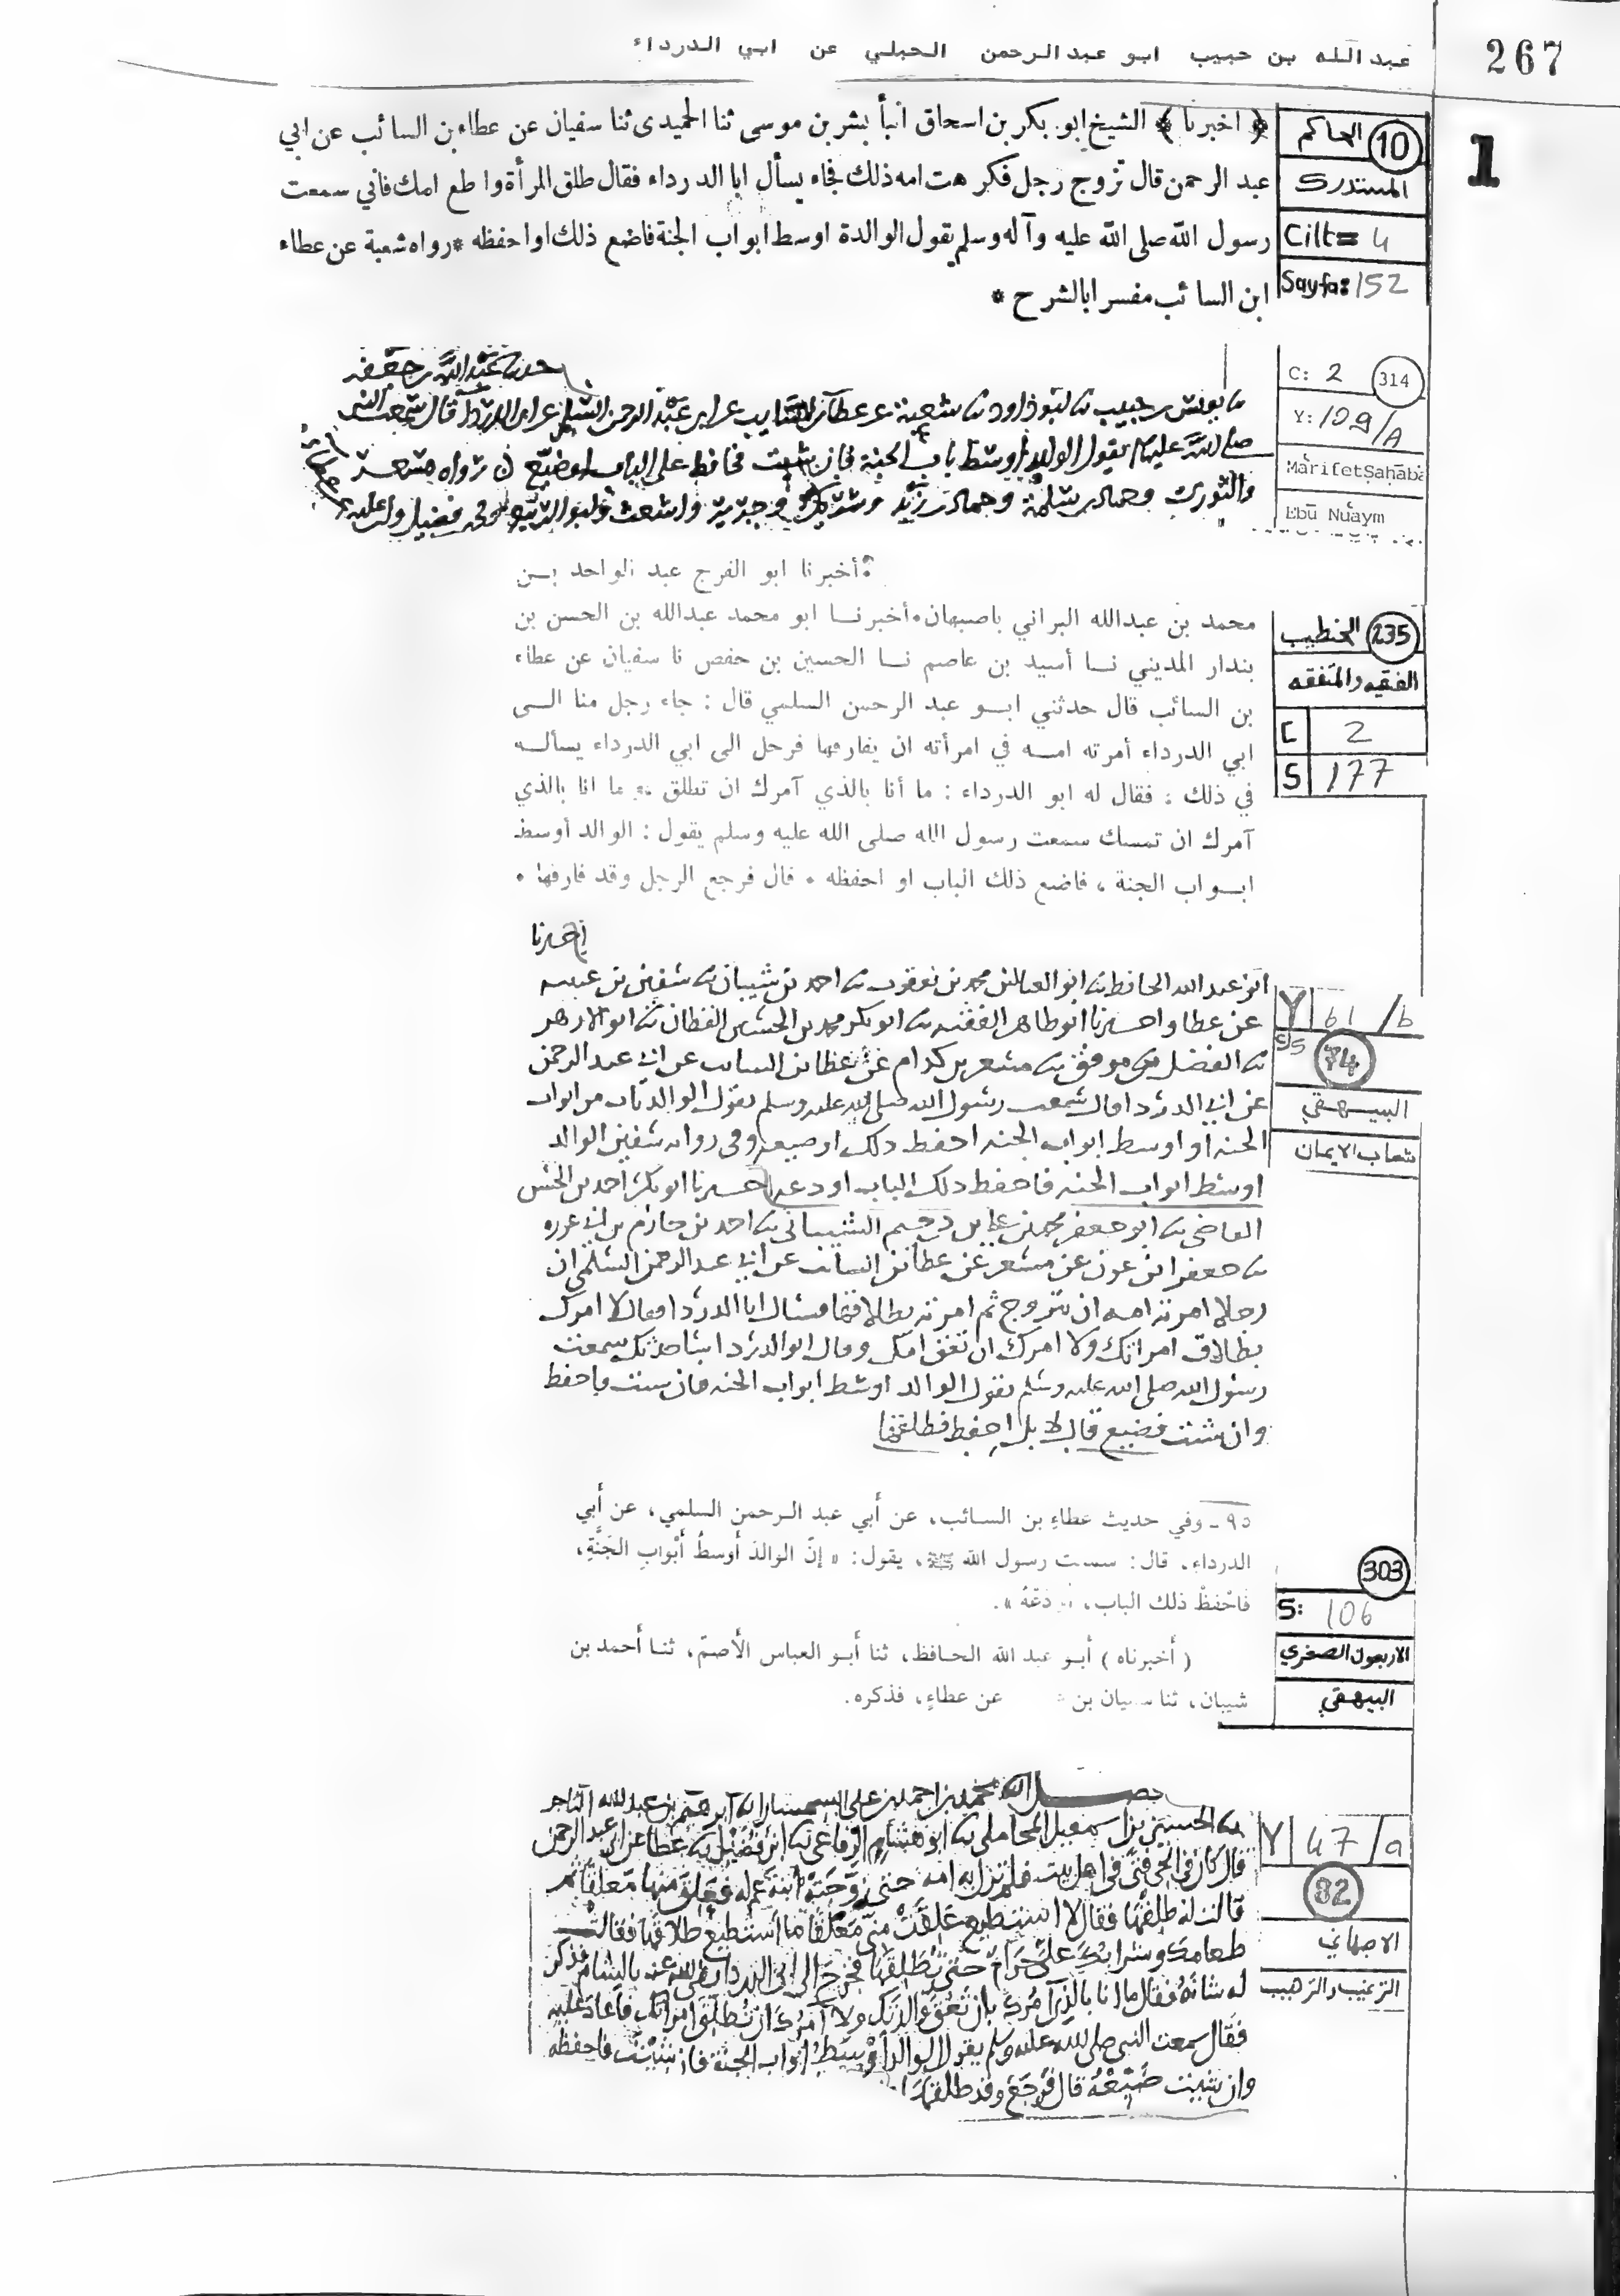 عبدالله بن حبيب ابو عبدالرحمن الحبلي عن ابي الدرداء
267
1
﴿ اخبرنا ﴾ الشيخ ابو بكر بن اسحاق انبأ بشر بن موسى ثنا الحميدى ثنا سفيان عن عطاء بن السائب عن ابي
عبد الرحمن قال تزوج رجل فكرهت امه ذلك فجاء يسأل ابا الدرداء فقال طلق المرأة واطع امك فاني سمعت
رسول الله صلى الله عليه وآله وسلم يقول الوالدة اوسط ابواب الجنة فاضع ذلك او احفظه * رواه شعبة عن عطاء
ابن السائب مفسرا بالشرح *
الحاكم 10
المستدرك
Cilt= 4
Sayfa: 152
حدثنا عبد الله بن جعفر
ثنا يونس بن حبيب ثنا ابو داود ثنا شعبة عن عطاء بن السايب عن ابي عبد الرحمن السلمي عن ابي الدرداء قال سمعت النبي
صلى الله عليه يقول الوالد اوسط باب الجنة فان شئت فحافظ على الباب او ضيع رواه مسعر
والثوري وحماد بن سلمة وحماد بن زيد وشريك وجرير
C: 2 314
Y: 129/A
MàrifetSahāba
Ebū Nuaym
أخبرنا ابو الفرج عبد الواحد بن
محمد بن عبدالله البراني باصبهان.أخبرنا ابو محمد عبدالله بن الحسن بن
بندار المديني نا أسيد بن عاصم نا الحسين بن حفص نا سفيان عن عطاء
بن السائب قال حدثني ابو عبد الرحمن السلمي قال : جاء رجل منا الى
ابي الدرداء أمرته امه في امرأته ان يفارقها فرحل الى ابي الدرداء يسأله
في ذلك : فقال له ابو الدرداء : ما أنا بالذي آمرك ان تطلق وما انا بالذي
آمرك ان تمسك سمعت رسول الله صلى الله عليه وسلم يقول : الوالد أوسط
ابواب الجنة ، فاضع ذلك الباب او احفظه . قال فرجع الرجل وقد فارقها .
الخطيب 235
الفقيه والمتفقه
C 2
S 177
اخبرنا
ابو عبد الله الحافظ ثنا ابو العباس محمد بن يعقوب ثنا احمد بن شيبان ثنا سفين بن عيينه
عن عطا واخبرنا ابو طاهر الفقيه ثنا ابو بكر محمد بن الحسين القطان ثنا ابو الازهر
ثنا الفضل بن موفق ثنا مسعر بن كدام عن عطا بن السائب عن ابي عبد الرحمن
عن ابي الدردا قال سمعت رسول الله صلى الله عليه وسلم يقول الوالد باب من ابواب
الجنه او اوسط ابواب الجنه احفظ ذلك او ضيعه وفي روايه سفين الوالد
اوسط ابواب الجنه فاحفظ ذلك الباب او دعه اخبرنا ابو بكر احمد بن الحسن
القاضي ثنا ابو جعفر محمد بن علي بن دحيم الشيباني ثنا احمد بن حازم بن ابي غرزه
ثنا جعفر بن عون عن مسعر عن عطا بن السائب عن ابي عبد الرحمن السلمي ان
رجلا امرته امه ان يتزوج ثم امرته بطلاقها فسال ابا الدردا فقال لا امرك
بطلاق امراتك ولا امرك ان تعق امك وقال ابو الدردا انبا حدثك سمعت
رسول الله صلى الله عليه وسلم يقول الوالد اوسط ابواب الجنه فان شئت فاحفظ
وان شئت فضيع قال لا بل احفظ فطلقها
Y 61/b
74
البيهقي
شعاب الايمان
٩٥ ـ وفي حديث عطاءِ بن السائب، عن أبي عبد الرحمن السلمي، عن أبي
الدرداءِ، قال: سمعت رسول الله ﷺ، يقول: «إنّ الوالدَ أوسطُ أبْوابِ الجَنَّةِ،
فاحْفظْ ذلك الباب، أو دعْهُ».
( أخبرناه ) أبو عبد الله الحافظ، ثنا أبو العباس الأصمّ، ثنا أحمد بن
شيبان، ثنا سفيان بن عن عطاءٍ، فذكره.
303
S: 106
الاربعون الصغرى
البيهقي
فصل محمد بن احمد بن علي السمسار ابراهيم بن عبد الله التاجر
ثنا الحسين بن اسمعيل المحاملي ثنا ابو هشام الرفاعي ثنا ابن فضيل ثنا عطا عن ابي عبد الرحمن
قال كان في الحي فتى في اهل بيت فلم تزل به امه حتى زوجته ابنة عم له فعلق منها معلقا ثم
قالت له طلقها فقال لا استطيع علقت مني معلقا ما استطيع طلاقها فقالت
طعامك وشرابك علي حرام حتى تطلقها فخرج الى ابي الدرداء رضي الله عنه بالشام فذكر
له شانه فقال ما انا بالذي آمرك بان تعق والدتك ولا آمرك ان تطلق امراتك فاعاد عليه
فقال سمعت النبي صلى الله عليه وسلم يقول الوالد اوسط ابواب الجنة فان شئت فاحفظه
وان شئت ضيعه قال فرجع وقد طلقها
Y 47/a
82
الاصبهاني
الترغيب والترهيب